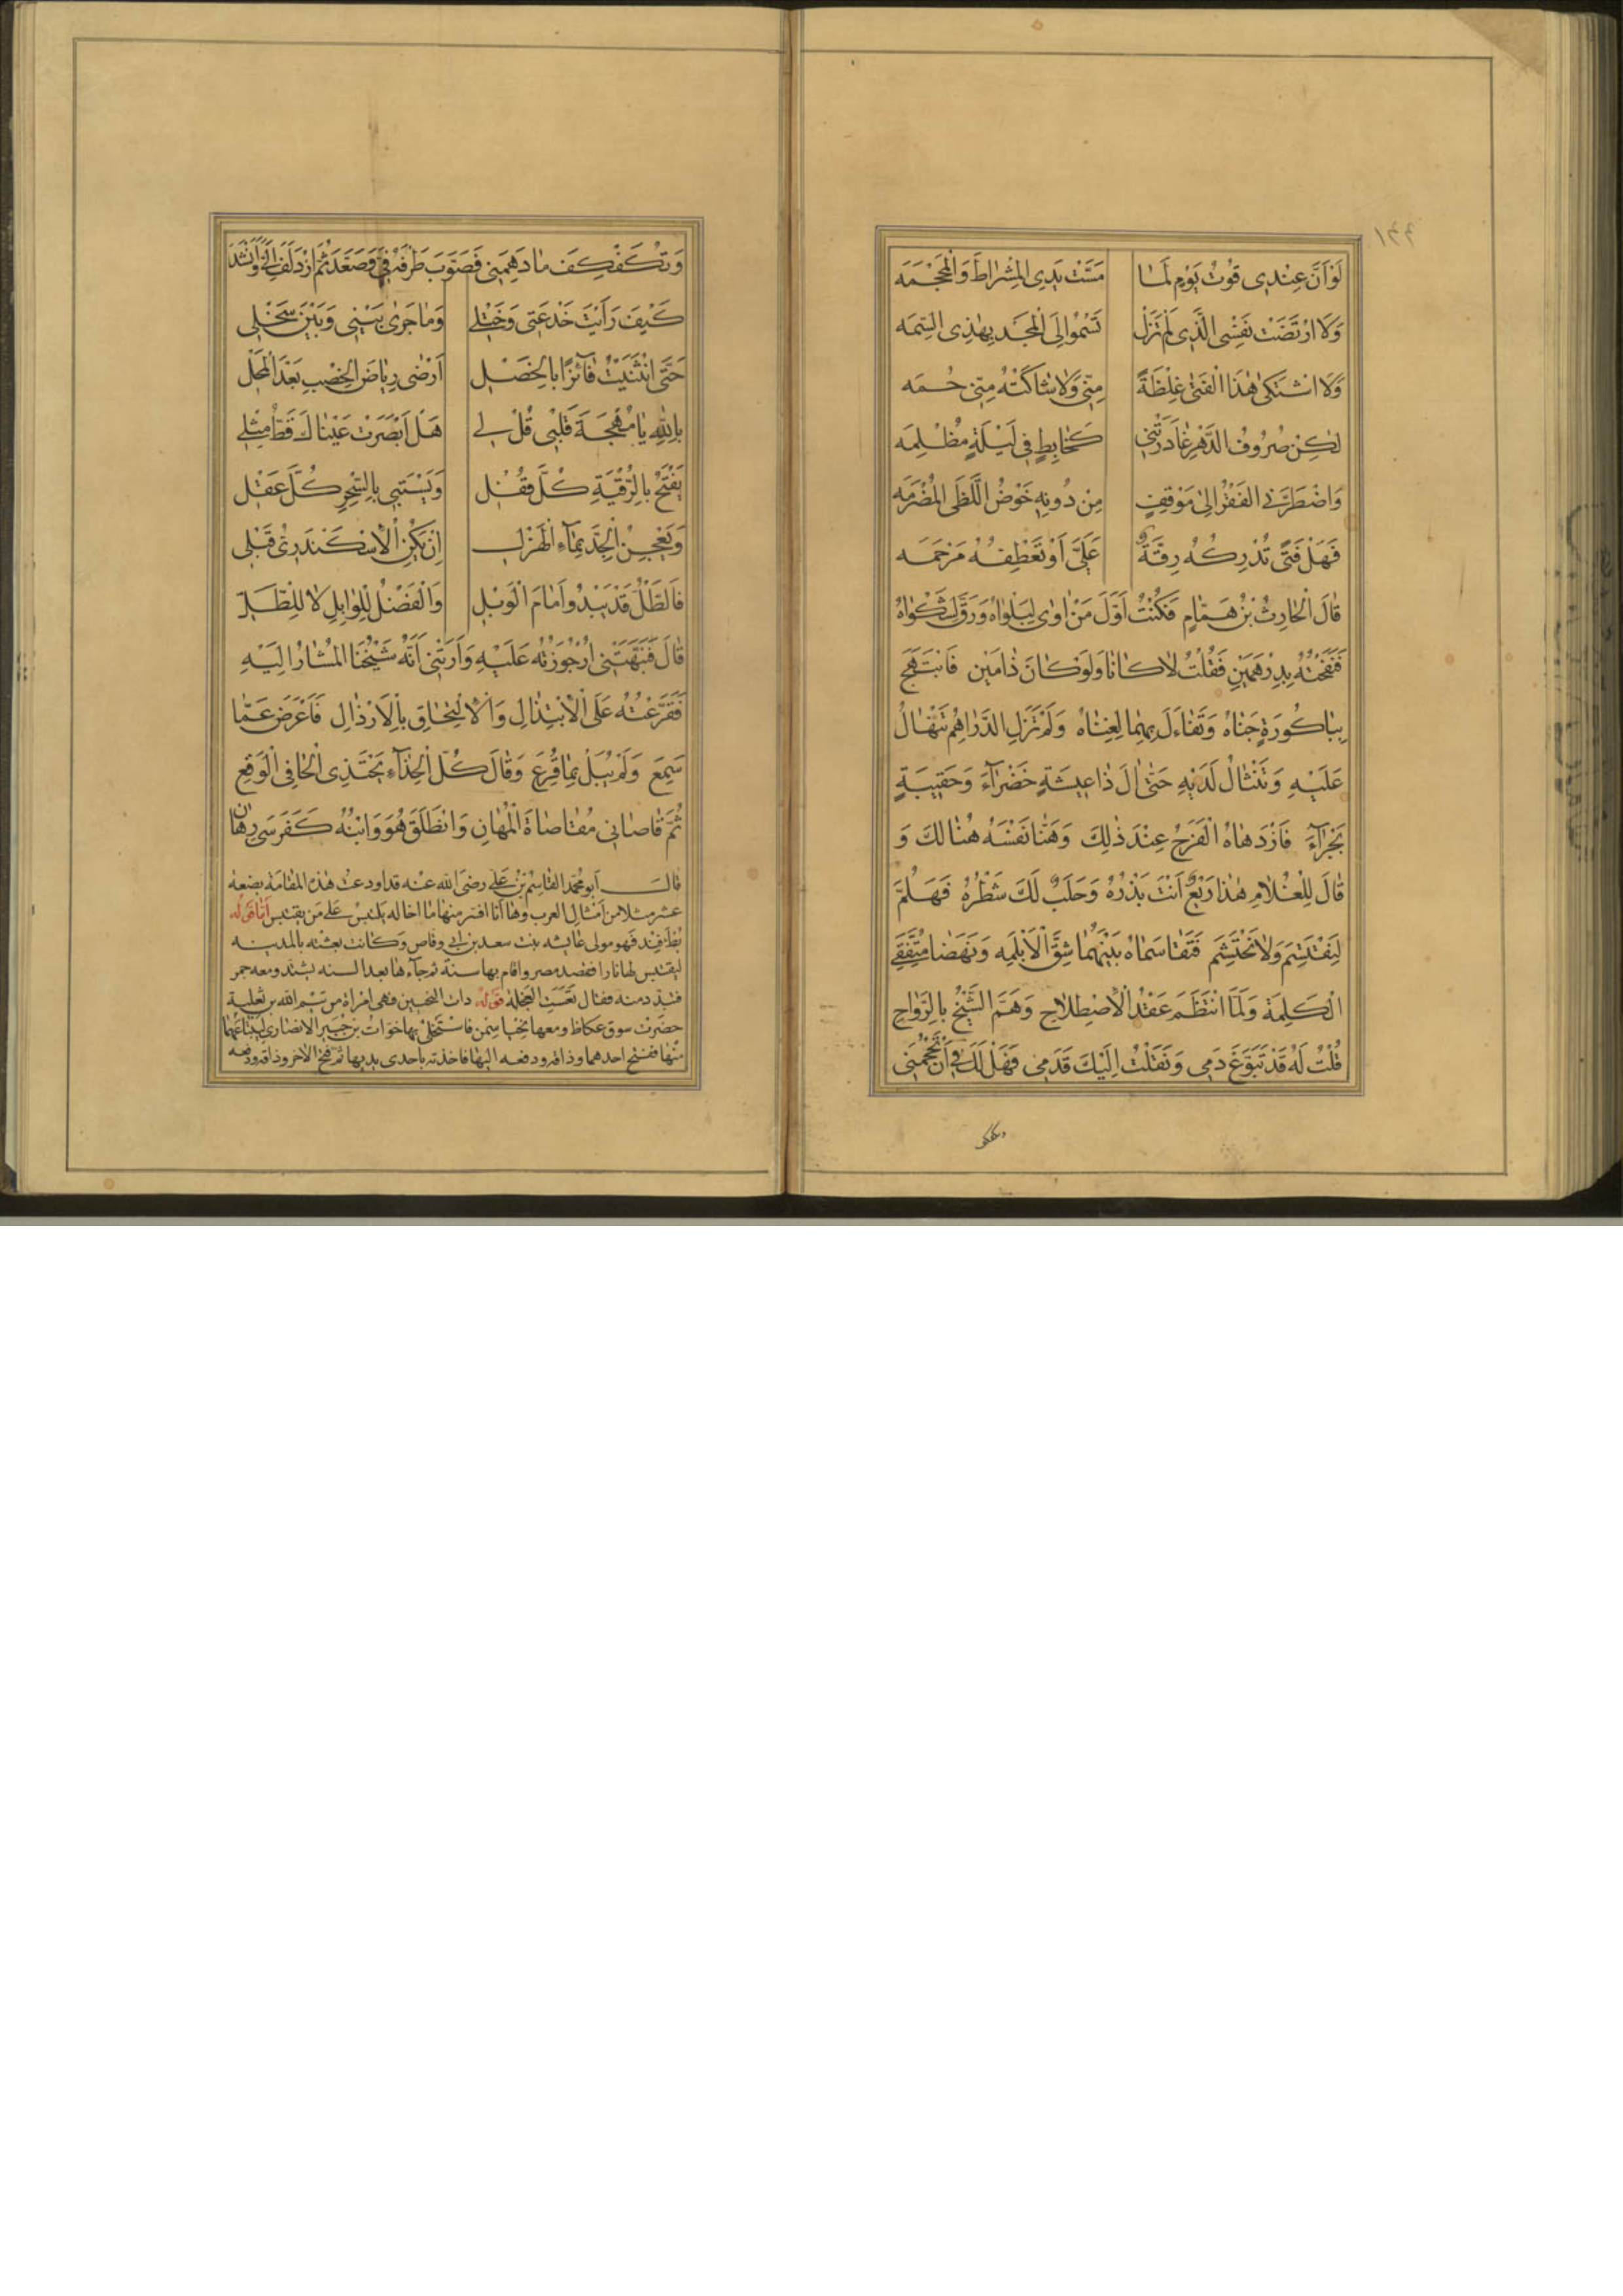 ١٤٤
لَوْ اَنَّ عِنْدِى قُوتُ يَوْمٍ لَمَا مَسَّتْ يَدِى الْمِشْرَاطَ وَالْمِحْجَمَه
وَلَا ارْتَضَتْ نَفْسِى الَّتِى لَمْ تَزَلْ تَسْمُوا اِلَى الْمَجْدِ بِهٰذِى السِّمَه
وَلَا اشْتَكٰى هٰذَا الْفَتٰى غِلْظَةً مِنِّى وَلَا شَاكَتْهُ مِنِّى حُمَه
لٰكِنْ صُرُوفُ الدَّهْرِ غَادَرْنَنِى كَخَابِطٍ فِى لَيْلَةٍ مُظْلِمَه
وَاضْطَرَّنِى الْفَقْرُ اِلٰى مَوْقِفٍ مِنْ دُونِهِ خَوْضُ اللَّظَى الْمُضْرَمَه
فَهَلْ فَتًى تُدْرِكُهُ رِقَّةٌ عَلَىَّ اَوْ تَعْطِفُهُ مَرْحَمَه
قَالَ الْحَارِثُ بْنُ هَمَّامٍ فَكُنْتُ اَوَّلَ مَنْ اَوٰى لِبَلْوَاهُ وَرَقَّ لِشَكْوَاهُ
فَنَفَحْتُهُ بِدِرْهَمَيْنِ فَقُلْتُ لَا كَانَا وَلَوْ كَانَ ذَا مَيْنٍ فَابْتَهَجَ
بِبَاكُورَةِ جَنَاهُ وَتَفَاءَلَ بِهِمَا لِغِنَاهُ وَلَمْ تَزَلِ الدَّرَاهِمُ تَنْهَالُ
عَلَيْهِ وَتَنْثَالُ لَدَيْهِ حَتّٰى اٰلَ ذَا عِيشَةٍ خَضْرَاءَ وَحَقِيبَةٍ
بَجْرَاءَ فَازْدَهَاهُ الْفَرَحُ عِنْدَ ذٰلِكَ وَهَنَّا نَفْسَهُ هُنَالِكَ وَ
قَالَ لِلْغُلَامِ هٰذَا رَيْعٌ اَنْتَ بَذْرُهُ وَحَلَبٌ لَكَ شَطْرُهُ فَهَلُمَّ
لِنَقْتَسِمَ وَلَا نَحْتَشِمَ فَتَقَاسَمَاهُ بَيْنَهُمَا شِقَّ الْاَبْلَمَهِ وَنَهَضَا مُتَّفِقَىِ
الْكَلِمَةِ وَلَمَّا انْتَظَمَ عَقْدُ الْاِصْطِلَاحِ وَهَمَّ الشَّيْخُ بِالرَّوَاحِ
قُلْتُ لَهُ قَدْ تَبَوَّغَ دَمِى وَنَقَلْتُ اِلَيْكَ قَدَمِى فَهَلْ لَكَ فِى اَنْ تَحْجُمَنِى
وتكفكف
وَتُكَفْكِفَ مَا دَهِمَنِى فَصَوَّبَ طَرْفَهُ فِىَّ وَصَعَّدَ ثُمَّ ازْدَلَفَ اِلَىَّ وَاَنْشَدَ
كَيْفَ رَأَيْتَ خَدْعَتِى وَخَتْلِى وَمَا جَرٰى بَيْنِى وَبَيْنَ سَخْلِى
حَتَّى انْثَنَيْتُ فَائِزًا بِالْخَصْلِ اَرْعٰى رِيَاضَ الْخِصْبِ بَعْدَ الْمَحْلِ
بِاللّٰهِ يَا مُهْجَةَ قَلْبِى قُلْ لِى هَلْ اَبْصَرَتْ عَيْنَاكَ قَطُّ مِثْلِى
يَفْتَحُ بِالرُّقْيَةِ كُلَّ قُفْلِ وَيَسْتَبِى بِالسِّحْرِ كُلَّ عَقْلِ
وَيَعْجِنُ الْجِدَّ بِمَاءِ الْهَزْلِ اِنْ يَكُنِ الْاِسْكَنْدَرِىُّ قَبْلِى
فَالطَّلُّ قَدْ يَبْدُو اَمَامَ الْوَبْلِ وَالْفَضْلُ لِلْوَابِلِ لَا لِلطَّلِّ
قَالَ فَنَبَّهَتْنِى اُرْجُوزَتُهُ عَلَيْهِ وَاَرَتْنِى اَنَّهُ شَيْخُنَا الْمُشَارُ اِلَيْهِ
فَقَرَّعْتُهُ عَلَى الْاِبْتِذَالِ وَالْاِلْتِحَاقِ بِالْاَرْذَالِ فَاَعْرَضَ عَمَّا
سَمِعَ وَلَمْ يُبَلْ بِمَا قُرِّعَ وَقَالَ كُلَّ الْحِذَاءِ يَحْتَذِى الْحَافِى الْوَقِعُ
ثُمَّ قَاصَانِى مُقَاصَاةَ الْمُهَانِ وَانْطَلَقَ هُوَ وَابْنُهُ كَفَرَسَىْ رِهَانٍ
قال ابو محمد القاسم بن على رضى الله عنه قد اودعت هذه المقامة بضعة
عشر مثلا من امثال العرب وها انا افسر منها ما اخاله يلتبس على من يقتبس اما قوله
بطء فند فهو مولى عايشه بنت سعد بن ابى وقاص وكانت بعثته بالمدينه
ليقتبس لها نارا فقصد مصر واقام بها سنة ثم جاءها بعد السنه يشتد ومعه جمر
فتبدد منه فقال تعست العجلة قوله ذات النحيين فهى امراة من تيم الله بن ثعلبة
حضرت سوق عكاظ ومعها نحيا سمن فاستخلى بها خوات بن جبير الانصارى ليبتاعهما
منها ففتح احدهما وذاقه ودفعه اليها فاخذته باحدى يديها ثم فتح الاخر وذاقه ودفعه